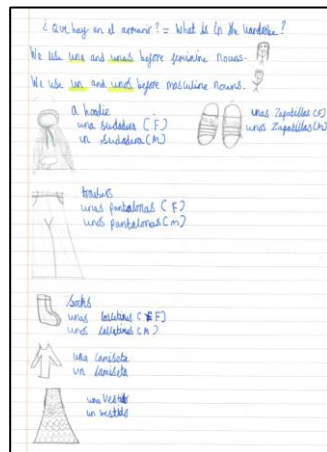 ¿Que hay en el armario? = What is in the wardrobe?
We use una and unas before feminine nouns.
We use un and unos before masculine nouns.
a hoodie
una sudadera (F)
un sudadera (M)
unas zapatillas (F)
unos zapatillas (M)
unas pantalonas (F)
unos pantalonas (M)
socks
unas (F)
unos (M)
una camiseta
un camiseta
una vestido
un vestido